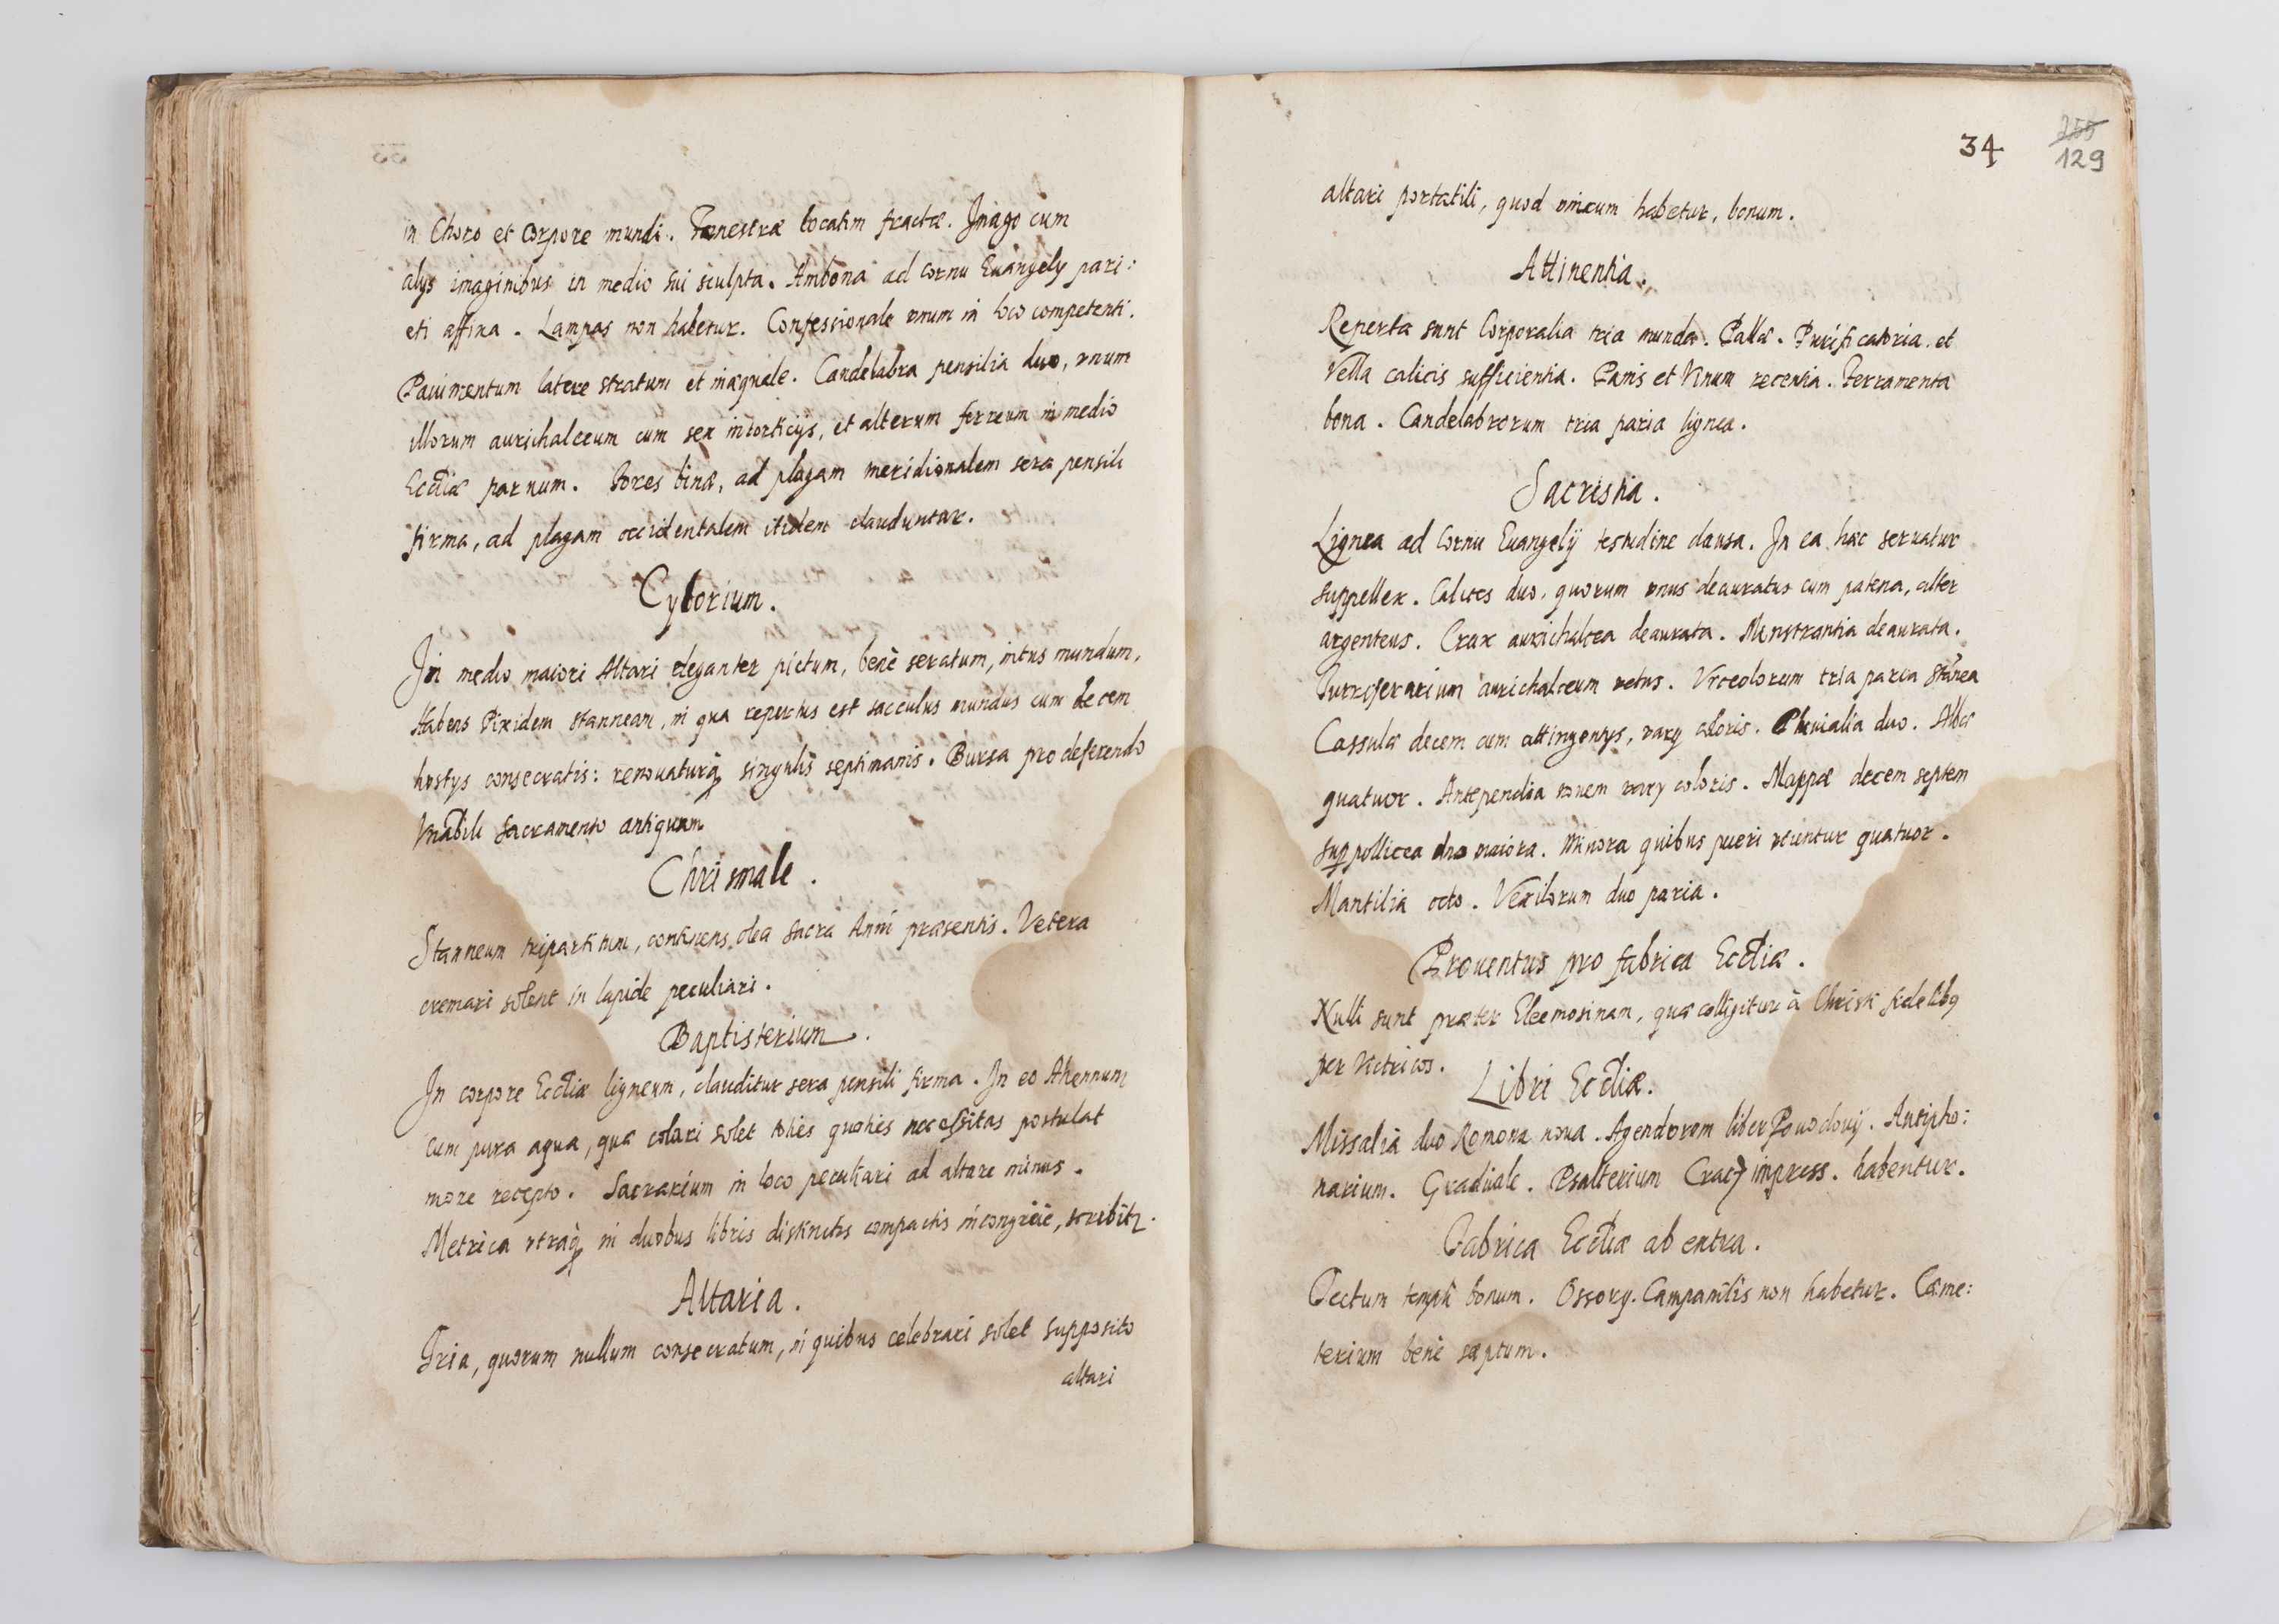 in Choro et Corpore mundi. Fenestræ locatim fractæ. Imago cum
alys imaginibus in medio sui sculpta. Ambona ad cornu Euangely pari:
eti affixa. Lampas non habetur. Confessionale vnum in loco competenti.
Pauimentum latere stratum et inæquale. Candelabra pensilia duo, vnum
illorum aurichalceum cum sex intorticijs, et alterum ferreum in medio
Eccliæ paruum. Fores binæ, ad plagam meridionalem sera pensili
firma, ad plagam occidentalem itidem clauduntur.
Cyborium.
In medio maiori Altari eleganter pictum, benè seratum, intus mundum,
Habens Pixidem stanneam, in qua repertus est sacculus mundus cum decem
hostys consecratis: renouaturq singulis septimanis. Bursa pro deferendo
Vnabili Sacramento antiquum
Chrismale.
Stanneum tripartitum, continens olea sacra Anni præsentis. Vetera
cremari solent in lapide peculiari.
Baptisterium.
In corpore Eccliæ ligneum, clauditur sera pensili firma. In eo Ahennum
cum pura aqua, quæ colari solet toties quoties necessitas postulat
more recepto. Sacrarium in loco peculiari ad altare minus.
Metrica vtraq in duobus libris distinctis compactis incongruè, scribitr.
Altaria.
Tria, quorum nullum consecratum, in quibus celebrari solet supposito
altari
34
255
129
altari portatili, quod vnicum habetur, bonum.
Attinentia.
Reperta sunt Corporalia tria munda. Pallæ. Purificatoria et
Vella calicis sufficientia. Panis et Vinum recentia. Ferramenta
bona. Candelabrorum tria paria lignea.
Sacristia.
Lignea ad Cornu Euangelij testudine clausa. In ea hæc seruatur
suppellex. Calices duo, quorum vnus deauratus cum patena, alter
argenteus. Crux aurichalcea deaurata. Monstrantia deaurata.
Turriferarium aurichalceum vetus. Vrceolorum tria paria stānea
Cassulæ decem cum attingentys, vary coloris. Pluuialia duo. Albæ
quatuor. Antependia nouem vary coloris. Mappæ decem septem
Suppollicea duo maiora. Minora quibus pueri vtuntur quatuor.
Mantilia octo. Vexilorum duo paria.
Prouentus pro fabrica Eccliæ.
Nulli sunt præter Eleemosinam, quæ colligitur à Christi fidelibq
per Vitricos.
Libri Eccliæ.
Missalia duo Romona noua. Agendorum liber Powodowij. Antipho:
narium. Graduale. Psalterium Crac: impress. habentur.
Fabrica Eccliæ ab extra.
Tectum templi bonum. Ossory. Campanilis non habetur. Cæme:
terium benè sæptum.